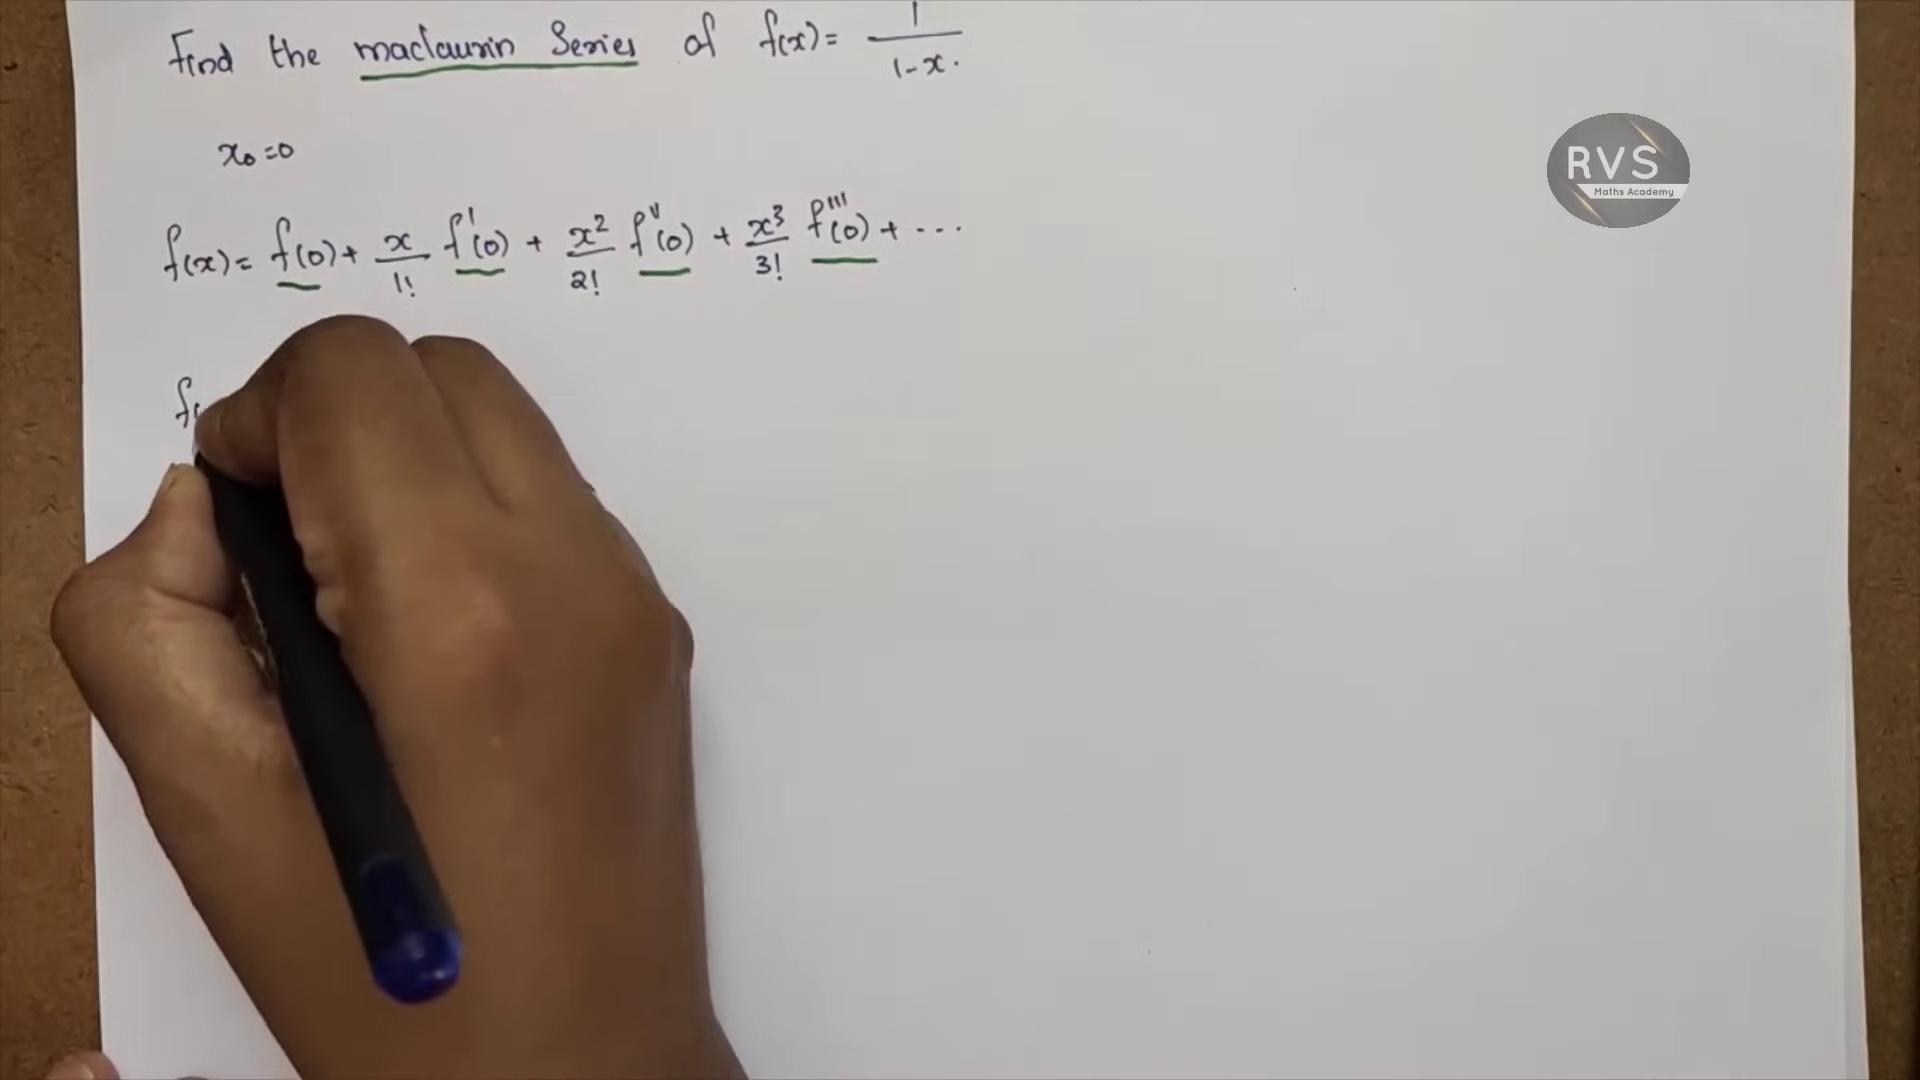 Find the maclaurin Series of f(x) = 1/1-x.
x₀ = 0
f(x) = f(0) + x/1! f'(0) + x²/2! f''(0) + x³/3! f'''(0) + ...
f(
RVS
Maths Academy